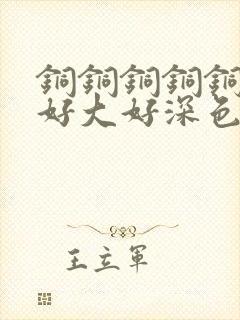 銅銅銅銅銅
好大好深色
王立軍